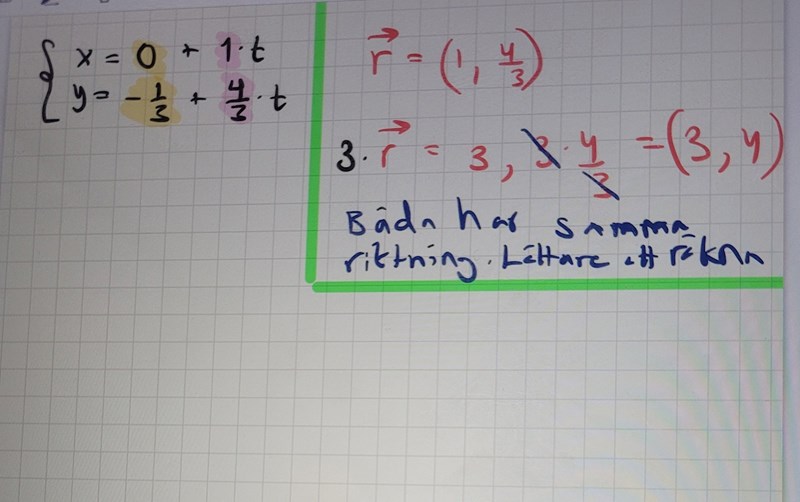 x = 0 + 1·t
y = -1/3 + 4/3·t
r⃗ = (1, 4/3)
3·r⃗ = 3, 3·4/3 = (3, 4)
Båda har samma
riktning. Lättare att räkna